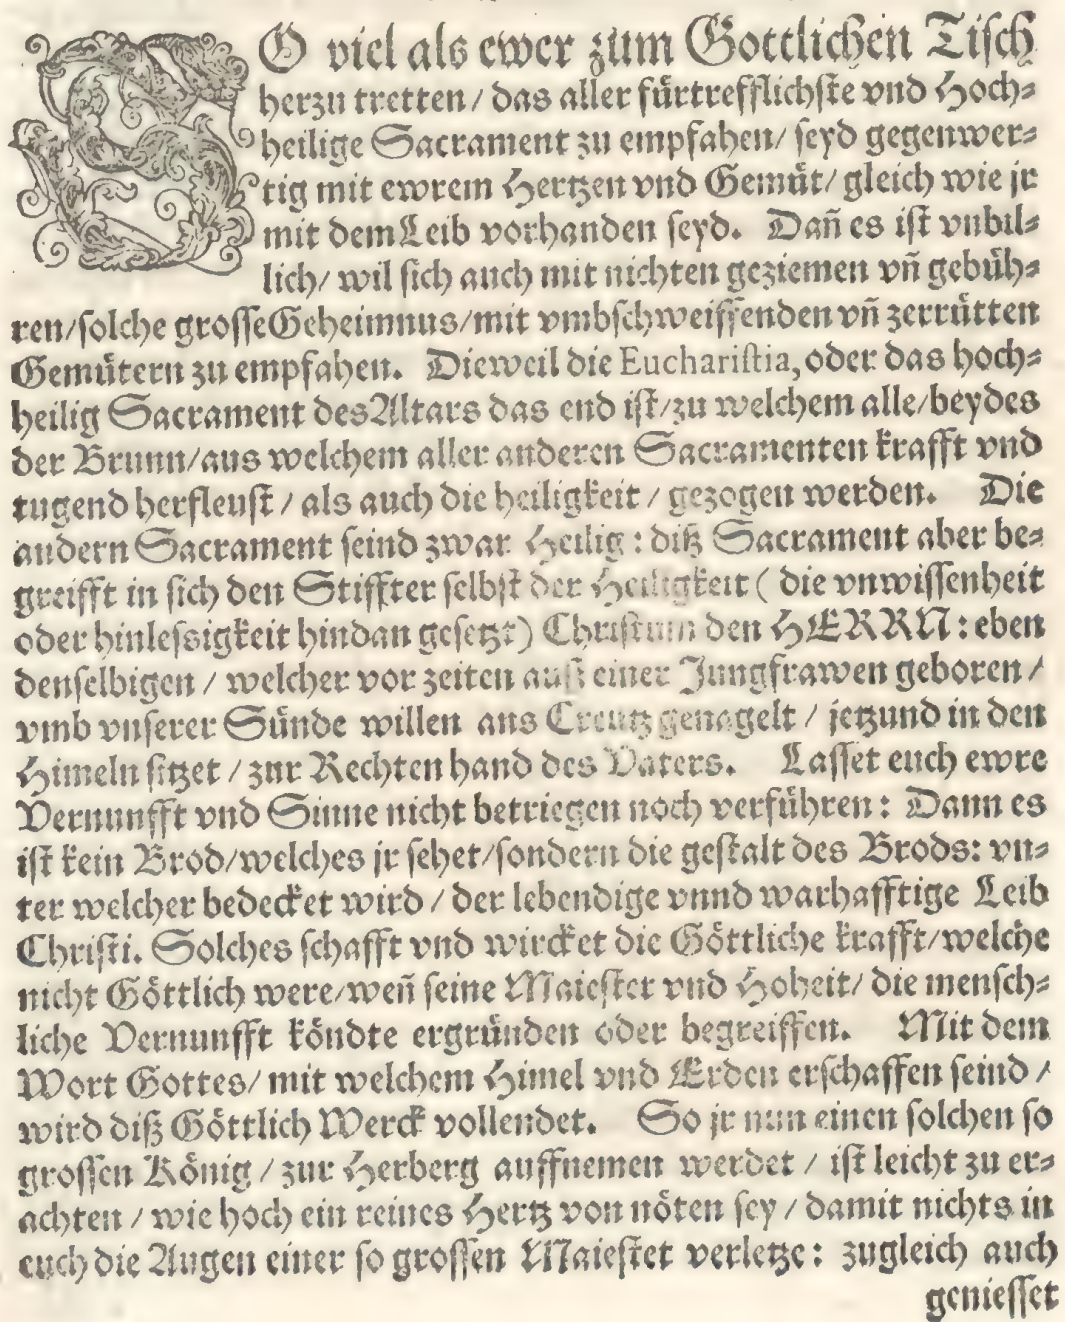 SO viel als ewer zum Gottlichen Tisch
herzu tretten / das aller fürtrefflichste vnd Hoch⸗
heilige Sacrament zu empfahen / seyd gegenwer⸗
tig mit ewrem Hertzen vnd Gemüt / gleich wie jr
mit dem Leib vorhanden seyd. Dañ es ist vnbil⸗
lich / wil sich auch mit nichten geziemen vñ gebüh⸗
ren / solche grosse Geheimnus / mit vmbschweiffenden vñ zerrütten
Gemütern zu empfahen. Dieweil die Eucharistia, oder das hoch⸗
heilig Sacrament des Altars das end ist / zu welchem alle / beydes
der Brunn / aus welchem aller anderen Sacramenten krafft vnd
tugend herfleust / als auch die heiligkeit / gezogen werden. Die
andern Sacrament seind zwar Heilig : diß Sacrament aber be⸗
greifft in sich den Stiffter selbst der Heiligkeit ( die vnwissenheit
oder hinlessigkeit hindan gesetzt ) Christum den HERRN : eben
denselbigen / welcher vor zeiten auß einer Jungfrawen geboren /
vmb vnserer Sünde willen ans Creutz genagelt / jetzund in den
Himeln sitzet / zur Rechten hand des Vaters. Lasset euch ewre
Vernunfft vnd Sinne nicht betriegen noch verführen : Dann es
ist kein Brod / welches jr sehet / sondern die gestalt des Brods : vn⸗
ter welcher bedecket wird / der lebendige vnnd warhafftige Leib
Christi. Solches schafft vnd wircket die Göttliche krafft / welche
nicht Göttlich were / weñ seine Maiestet vnd Hoheit / die mensch⸗
liche Vernunfft köndte ergründen oder begreiffen. Mit dem
Wort Gottes / mit welchem Himel vnd Erden erschaffen seind /
wird diß Göttlich Werck vollendet. So jr nun einen solchen so
grossen König / zur Herberg auffnemen werdet / ist leicht zu er⸗
achten / wie hoch ein reines Hertz von nöten sey / damit nichts in
euch die Augen einer so grossen Maiestet verletze : zugleich auch
geniesset